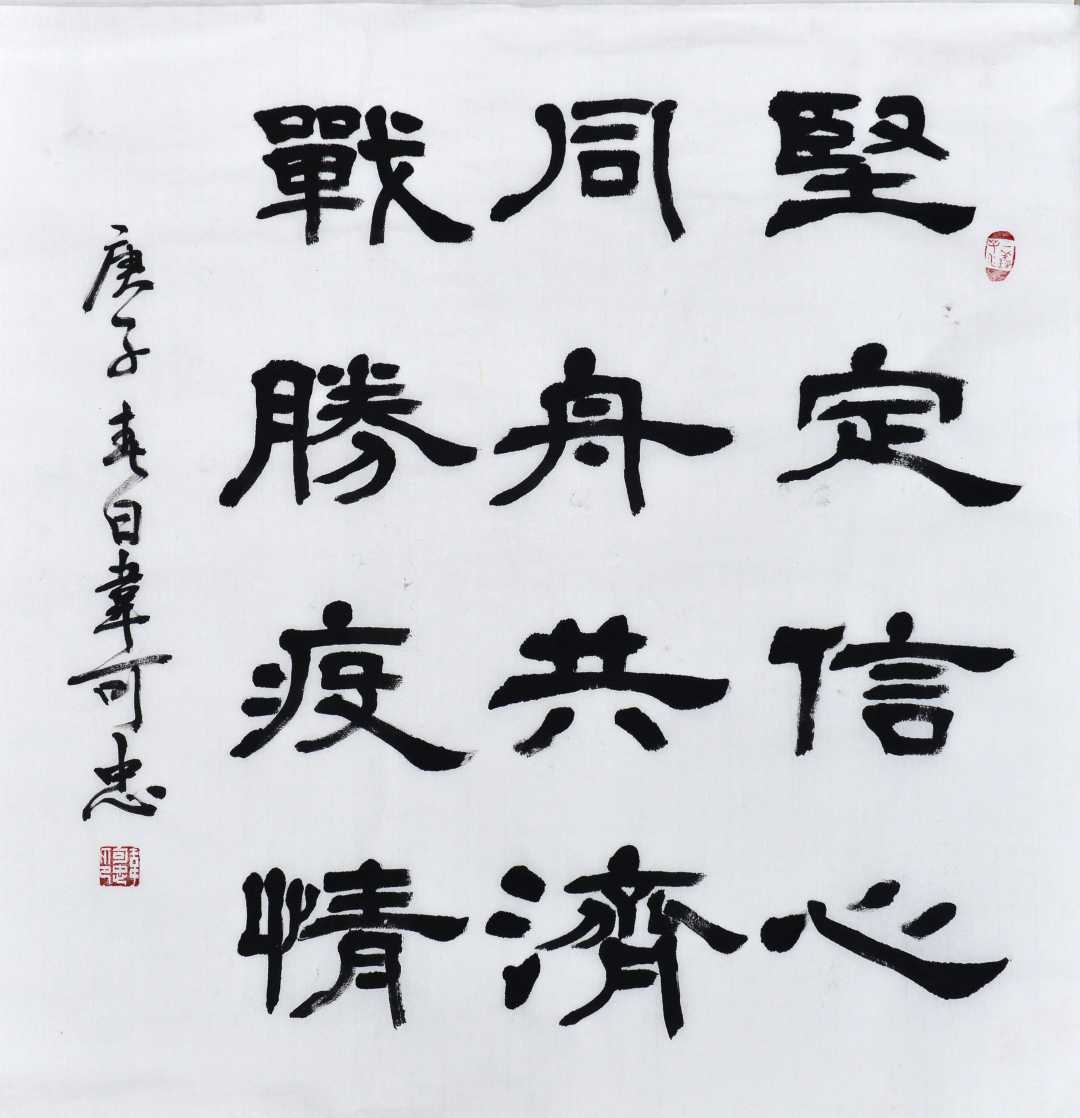 堅定信心
同舟共濟
戰勝疫情
庚子春日韋可忠
韋可忠印